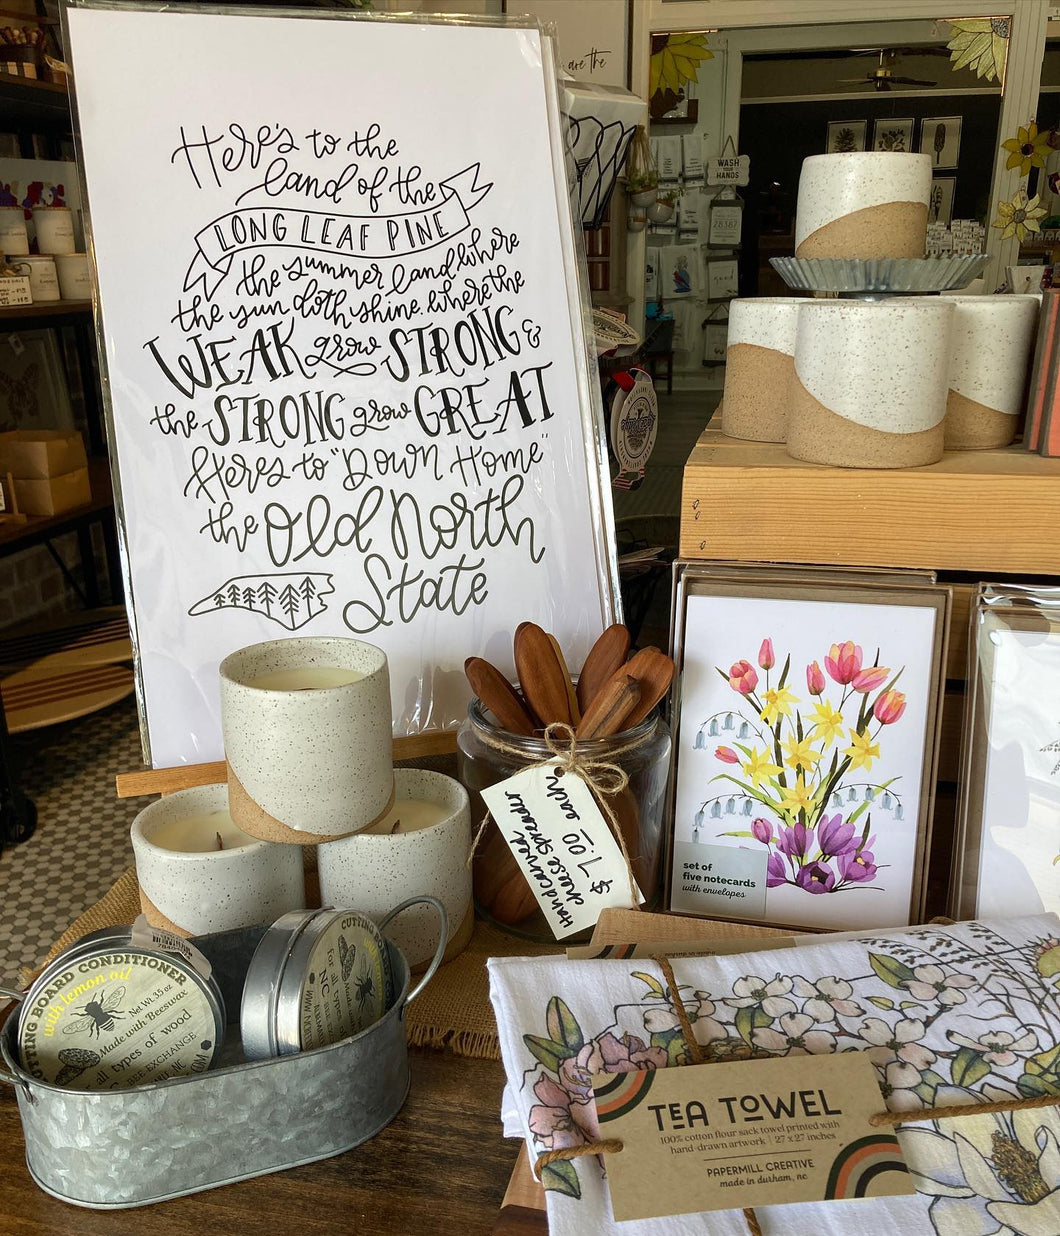 Here's to the
land of the
LONG LEAF PINE
the summer land where
the sun doth shine, where the
WEAK grow STRONG &
the STRONG grow GREAT
Here's to "Down Home"
the Old North
State
are the
WASH
YOUR
HANDS
28387
Handcarved
cheese spreader
$7.00 each
set of
five notecards
with envelopes
CUTTING BOARD CONDITIONER
with lemon oil
Net Wt. 3.5 oz
Made with Beeswax
all types of wood
BEE EXCHANGE
NC
.COM
CUTTING BOARD
for all type
Made w
TEA TOWEL
100% cotton flour sack towel printed with
hand-drawn artwork | 27 x 27 inches
PAPERMILL CREATIVE
made in durham, nc